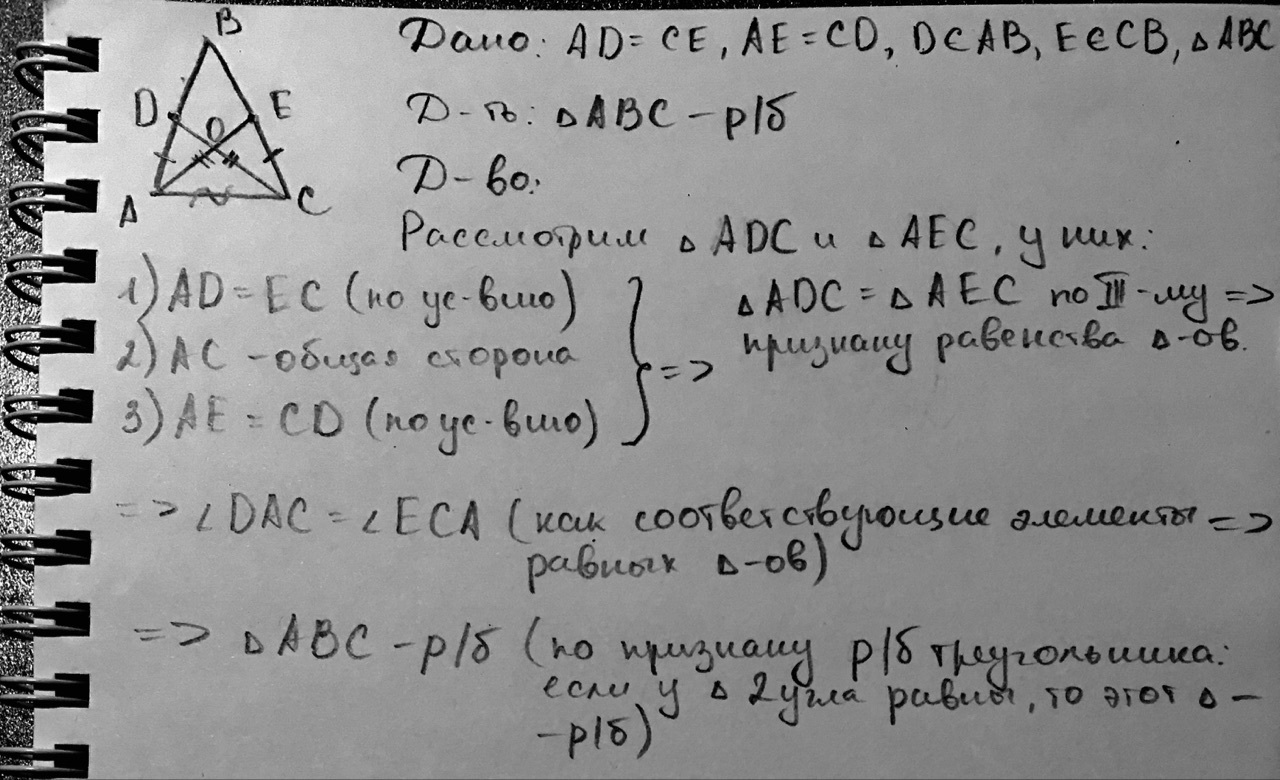 B
D
E
O
A
C
Дано: AD = CE, AE = CD, D∈AB, E∈CB, ΔABC
Д-ть: ΔABC – р/б
Д-во:
Рассмотрим ΔADC и ΔAEC, у них:
1) AD = EC (по ус-вию)
2) AC – общая сторона
3) AE = CD (по ус-вию)
=> ΔADC = ΔAEC по III-му =>
признаку равенства Δ-ов.
=> ∠DAC = ∠ECA (как соответствующие элементы =>
равных Δ-ов)
=> ΔABC – р/б (по признаку р/б треугольника:
если у Δ 2 угла равны, то этот Δ –
– р/б)